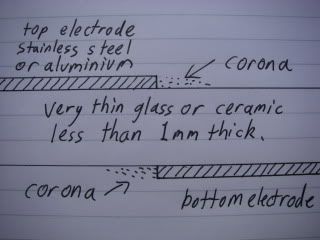 top electrode
stainless steel
or aluminium
corona
Very thin glass or ceramic
less than 1mm thick.
corona
bottom electrode